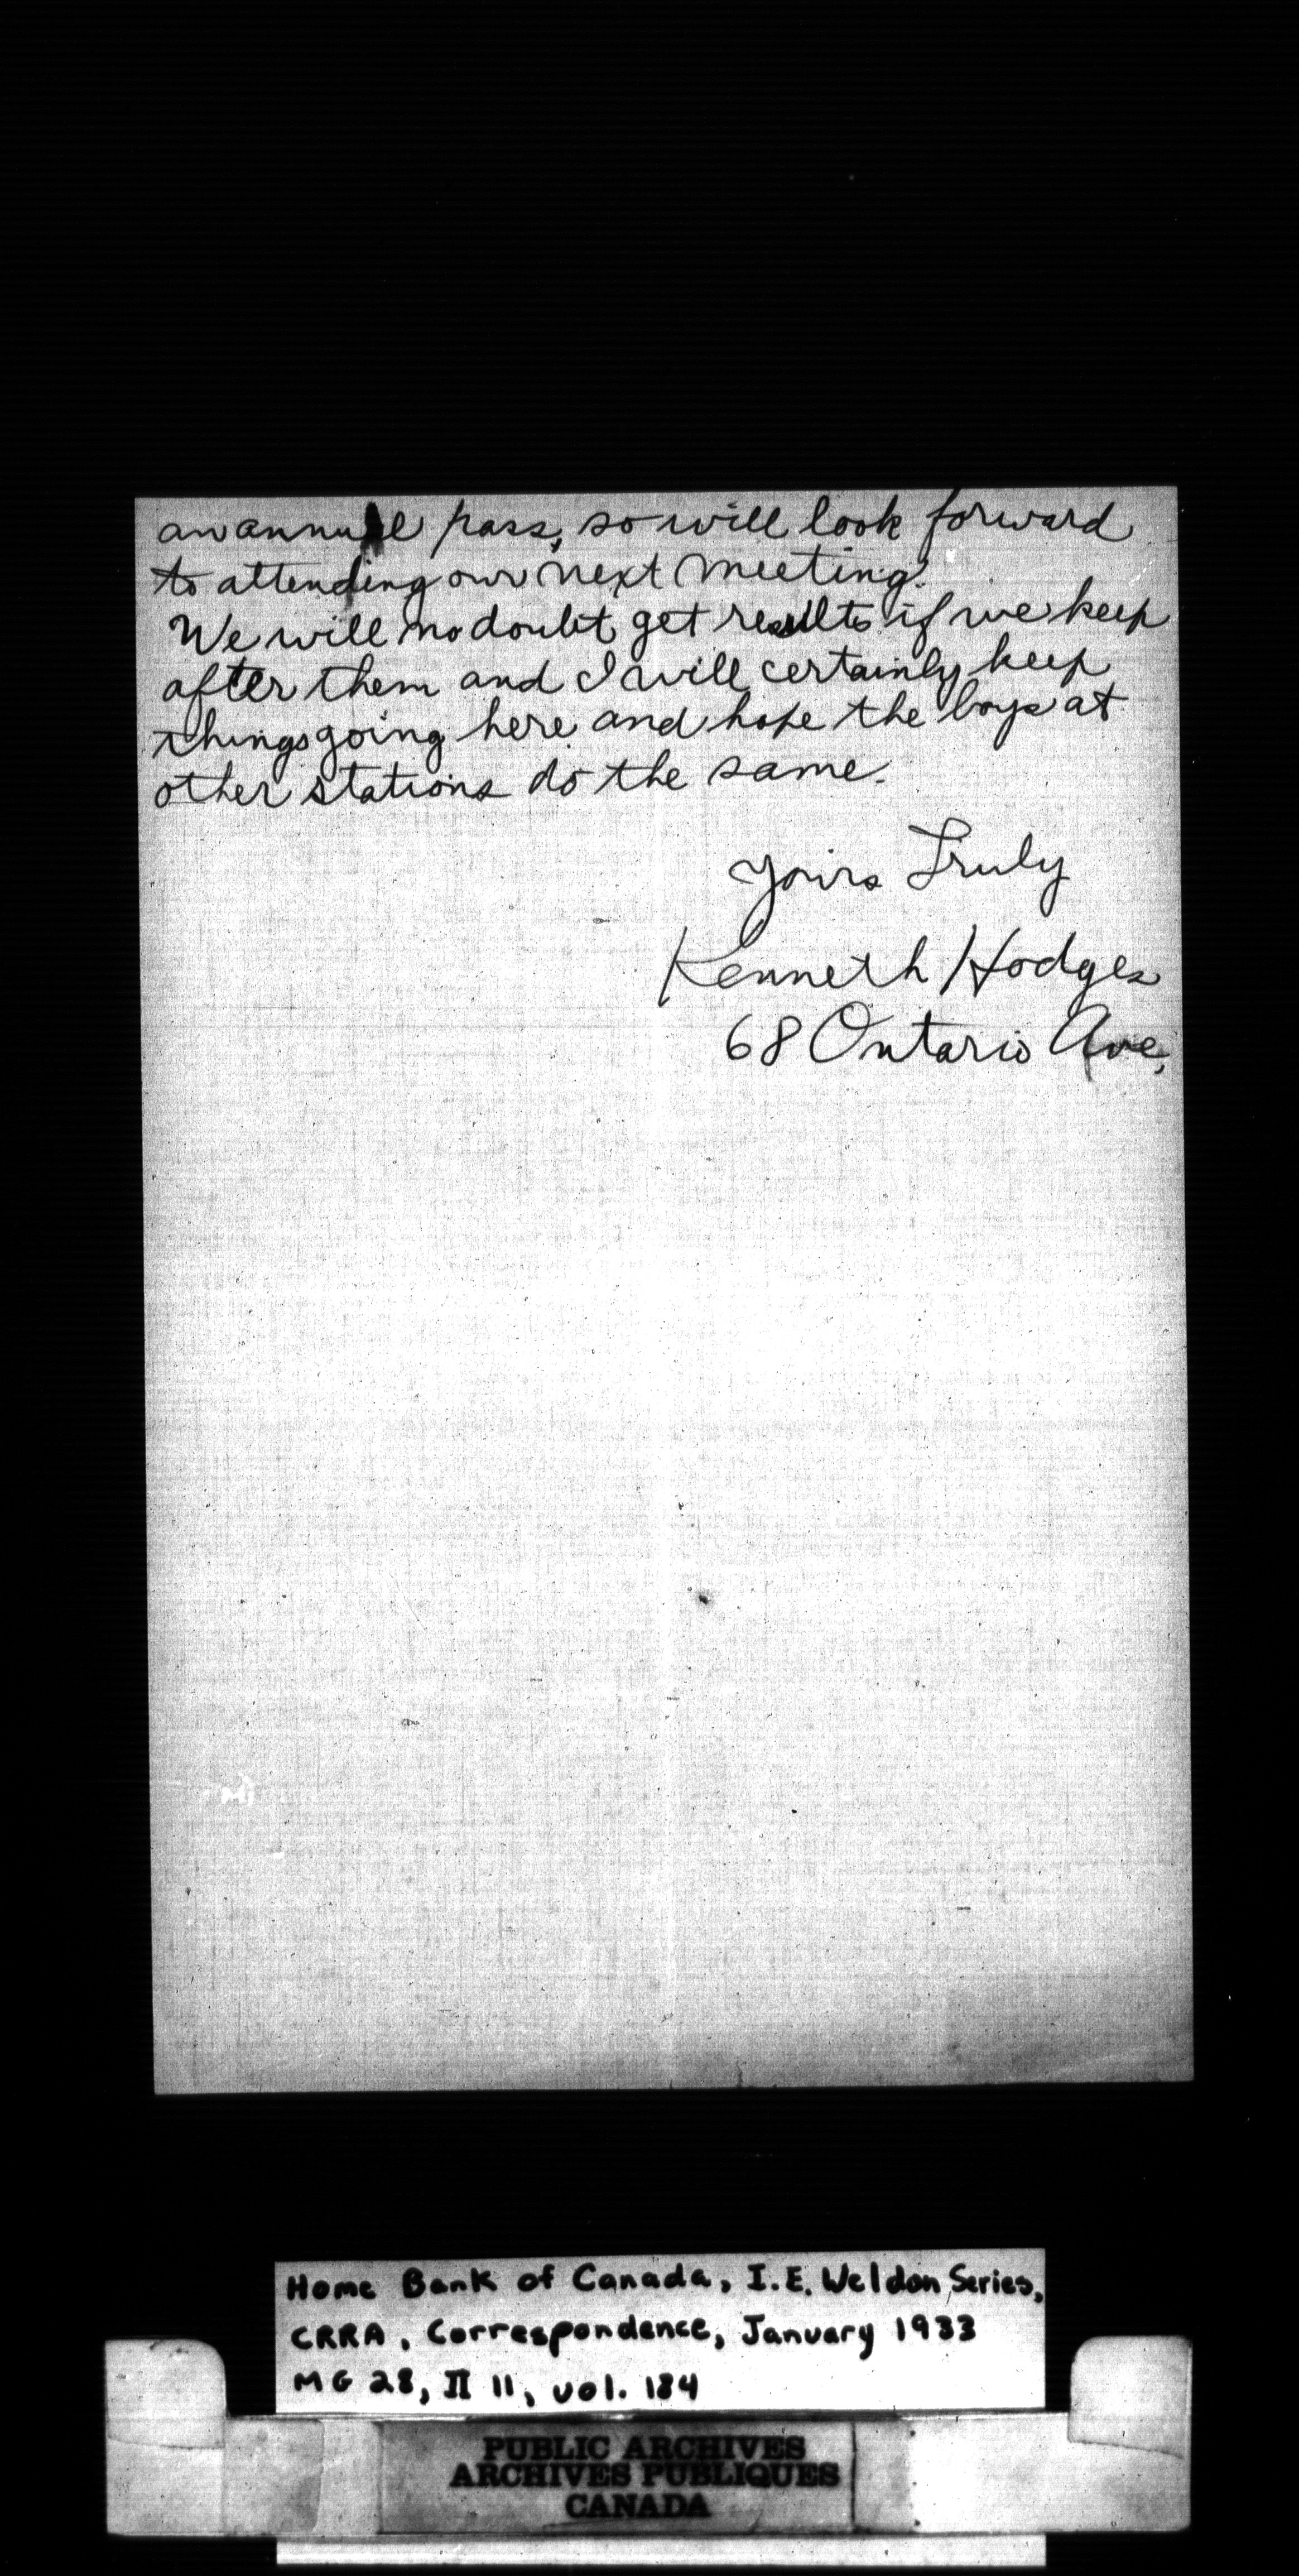 an annuale pass, so will look forward
to attending our next meeting.
We will no doubt get results if we keep
after them and I will certainly keep
things going here and hope the boys at
other stations do the same.
Yours Truly
Kenneth Hodges
68 Ontario Ave,
Home Bank of Canada, I.E. Weldon Series,
CRRA, Correspondence, January 1933
MG 28, II 11, vol. 184
PUBLIC ARCHIVES
ARCHIVES PUBLIQUES
CANADA